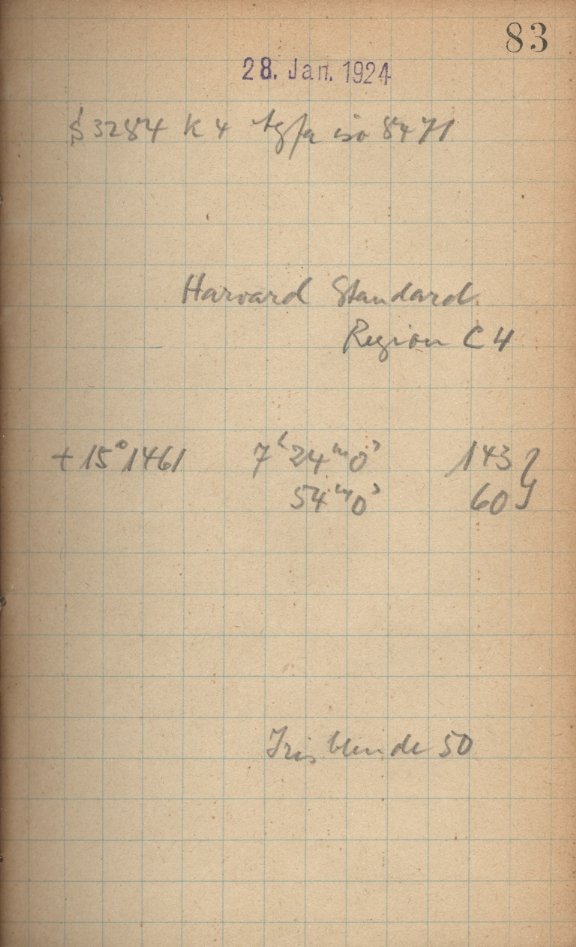 83
28. Jan. 1924
S 3284 K 4 Agfa iso 8471
Harvard Standard
Region C4
+15°1461 7ʰ24ᵐ0ˢ 143
54ᵐ0ˢ 60
Irisblende 50